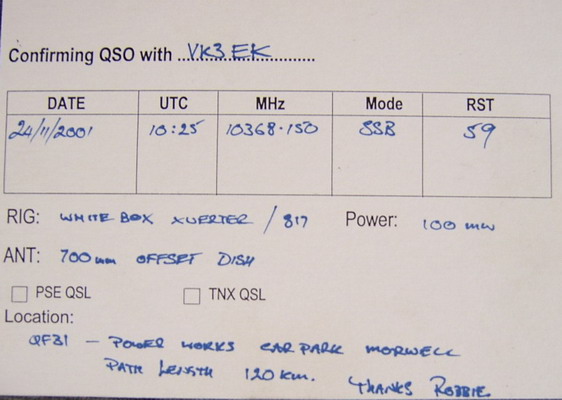 Confirming QSO with ....VK3EK....
DATE UTC MHz Mode RST
24/11/2001 10:25 10368.150 SSB 59
RIG: WHITE BOX XVERTER / 817 Power: 100 mw
ANT: 700mm OFFSET DISH
PSE QSL TNX QSL
Location:
QF31 - POWER WORKS CAR PARK MORWELL
PATH LENGTH 120 KM. THANKS ROBBIE.